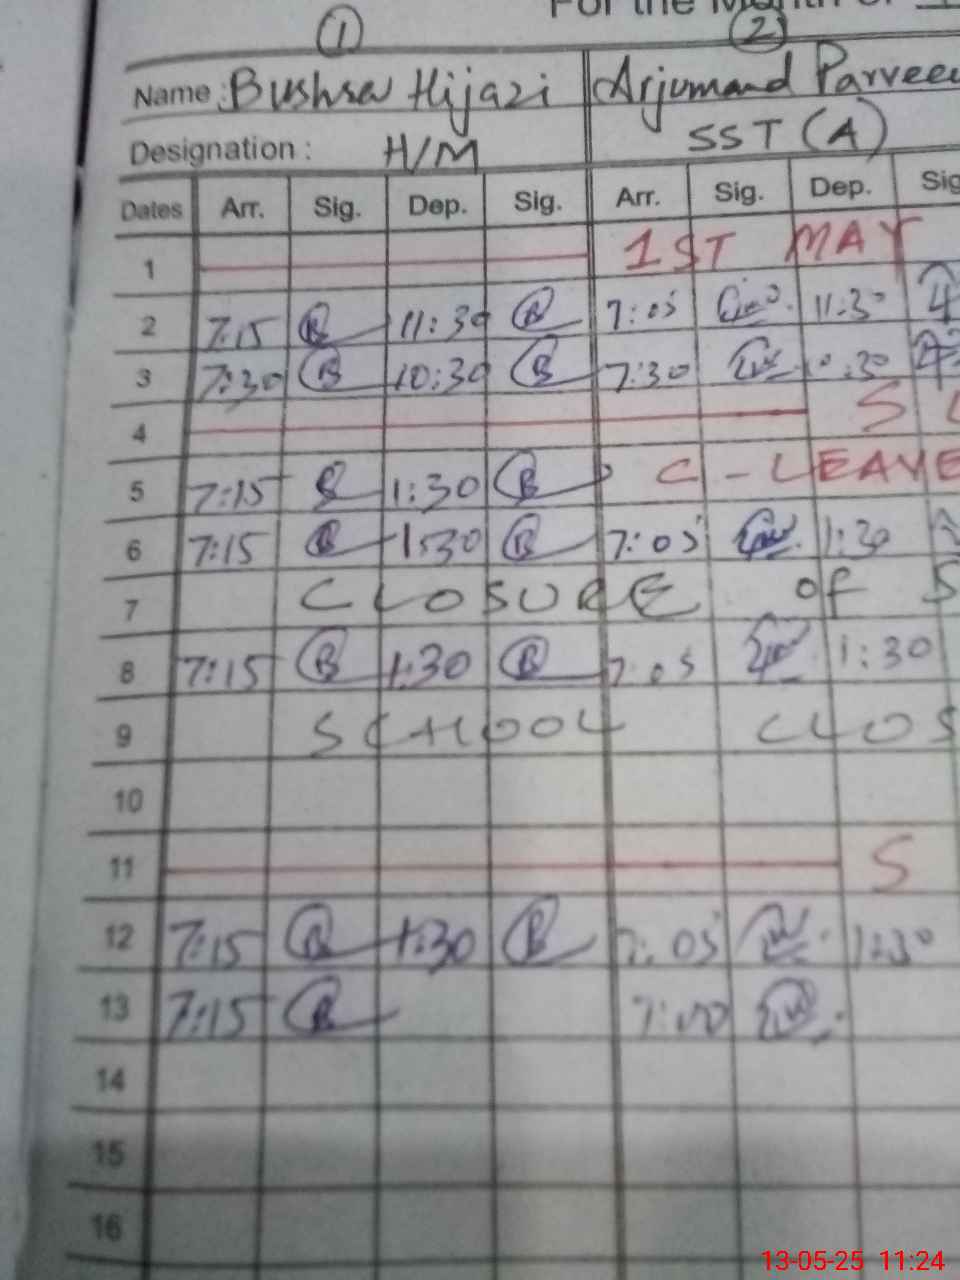 For the Month of
1 2
Name : Bushra Hijazi Arjumand Parveen
Designation : H/M SST (A)
Dates Arr. Sig. Dep. Sig. Arr. Sig. Dep. Sig
1 1ST MAY
2 7:15 B 11:30 B 7:05 11:30
3 7:30 B 10:30 B 7:30 10:30
4 S
5 7:15 B 1:30 B C-LEAVE
6 7:15 B 1:30 B 7:05 1:30
7 CLOSURE OF S
8 7:15 B 1:30 B 7:05 1:30
9 SCHOOL CLOS
10
11 S
12 7:15 B 1:30 B 7:05 1:30
13 7:15 B 7:00
14
15
16
13-05-25 11:24